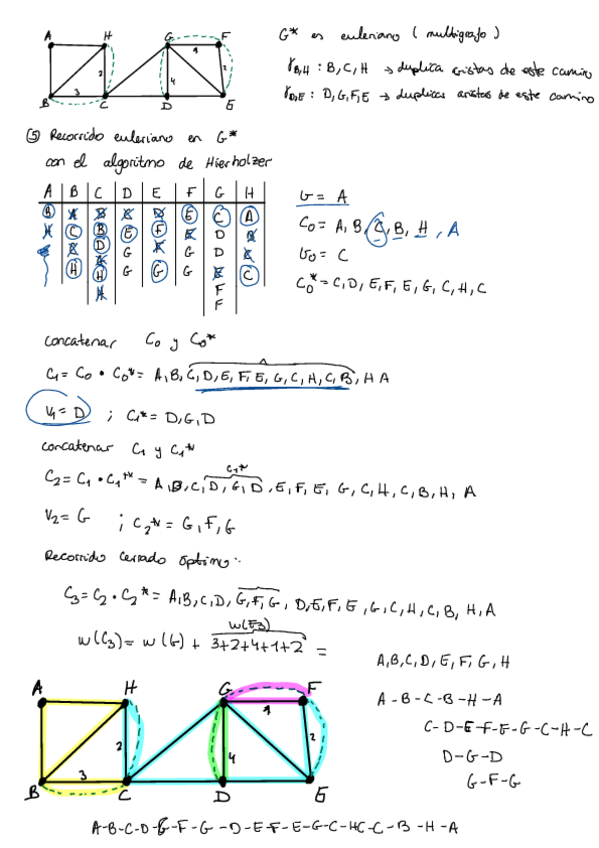 A H G F
1
2 4 2
3
B C D E
G* es euleriano ( multigrafo )
γB,H : B, C, H → duplica aristas de este camino
γD,E : D, G, F, E → duplicar aristas de este camino
⑤ Recorrido euleriano en G*
con el algoritmo de Hierholzer
A B C D E F G H
B A B C D E C A
H C B E F E D B
B D G F G D C
H A G G G E C
H F
F
v = A
C0 = A, B, C, B, H, A
v0 = C
C0* = C, D, E, F, E, G, C, H, C
concatenar C0 y C0*
C1 = C0 • C0* = A, B, C, D, E, F, E, G, C, H, C, B, H A
V1 = D ; C1* = D, G, D
concatenar C1 y C1*
C1*
C2 = C1 • C1* = A, B, C, D, G, D, E, F, E, G, C, H, C, B, H, A
V2 = G ; C2* = G, F, G
Recorrido cerrado óptimo:
C3 = C2 • C2* = A, B, C, D, G, F, G, D, E, F, E, G, C, H, C, B, H, A
W(E3)
W(C3) = W(G) + 3+2+4+1+2 =
A, B, C, D, E, F, G, H
A - B - C - B - H - A
C - D - E - F - E - G - C - H - C
D - G - D
G - F - G
A H G F
1
2 4 2
3
B C D E
A - B - C - D - G - F - G - D - E - F - E - G - C - H C - C - B - H - A